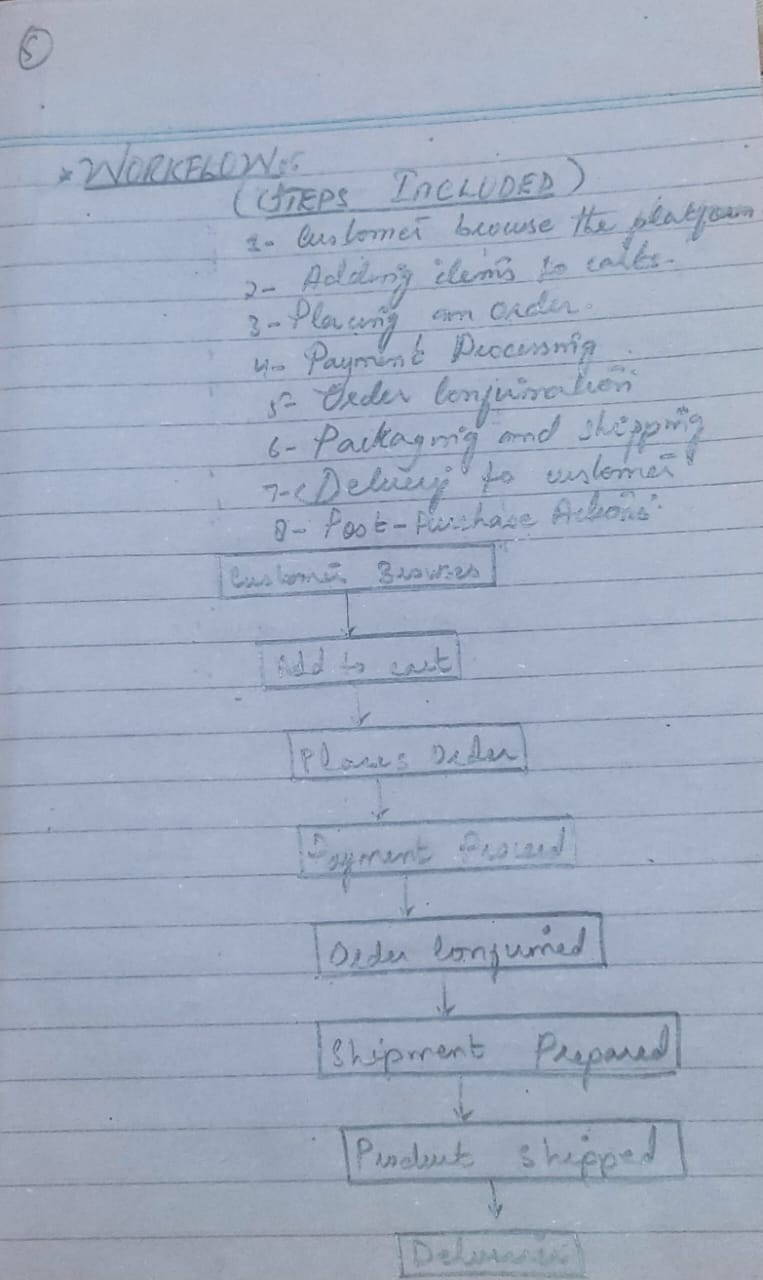 5
* WORKFLOW:
(STEPS INCLUDED)
1- Customer browse the platform
2- Adding items to carts.
3- Placing an order.
4- Payment Processing
5- Order Confirmation
6- Packaging and shipping
7- Delivery to customer
8- Post-Purchase Actions.
Customer Browses
Add to cart
Places Order
Payment
Order Confirmed
Shipment Prepared
Product Shipped